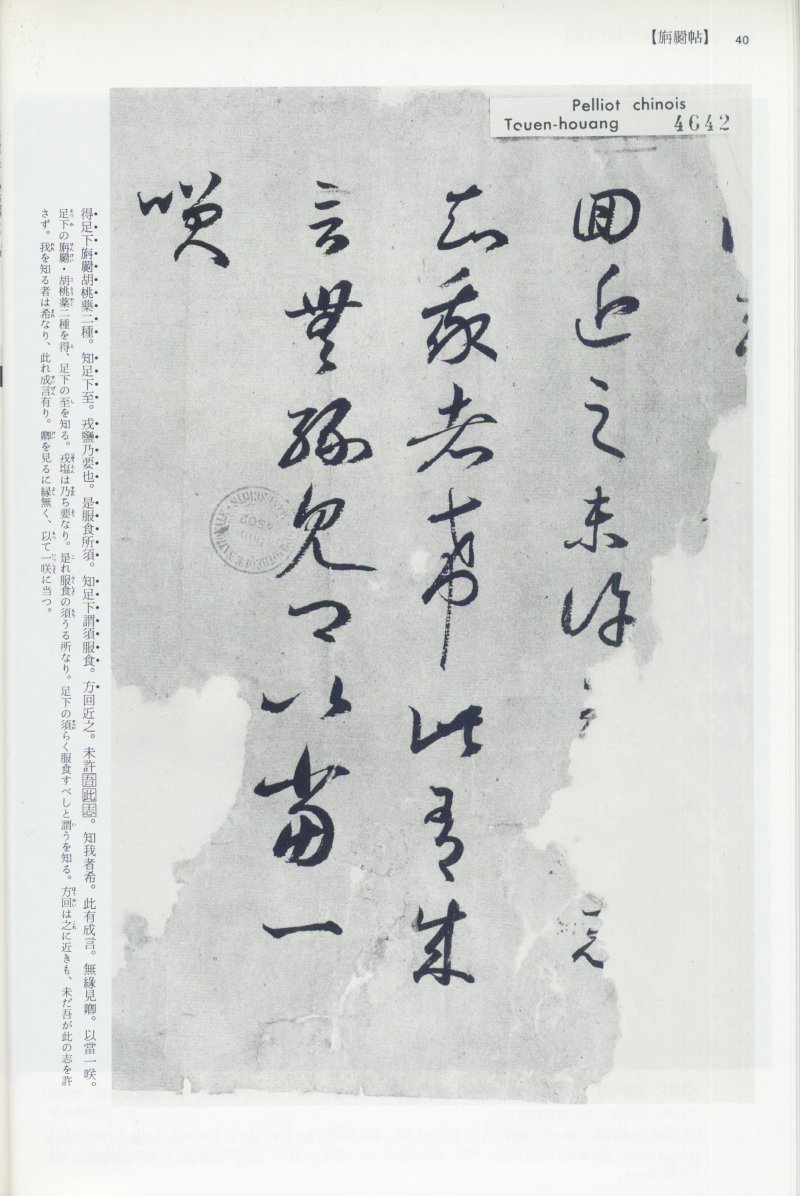 【旃罽帖】 40
Pelliot chinois
Touen-houang 4642
回近之未許
知我者希此有成
言無緣見卿以當一
咲
得足下旃罽胡桃藥二種。知足下至。戎鹽乃要也。是服食所須。知足下謂須服食。方回近之。未許吾此志。知我者希。此有成言。無緣見卿。以當一咲。
足下の旃罽・胡桃薬二種を得、足下の至を知る。戎塩は乃ち要なり。是れ服食の須うる所なり。足下の須らく服食すべしと謂うを知る。方回は之に近きも、未だ吾が此の志を許
さず。我を知る者は希なり、此れ成言有り。卿を見るに縁無く、以て一咲に当つ。